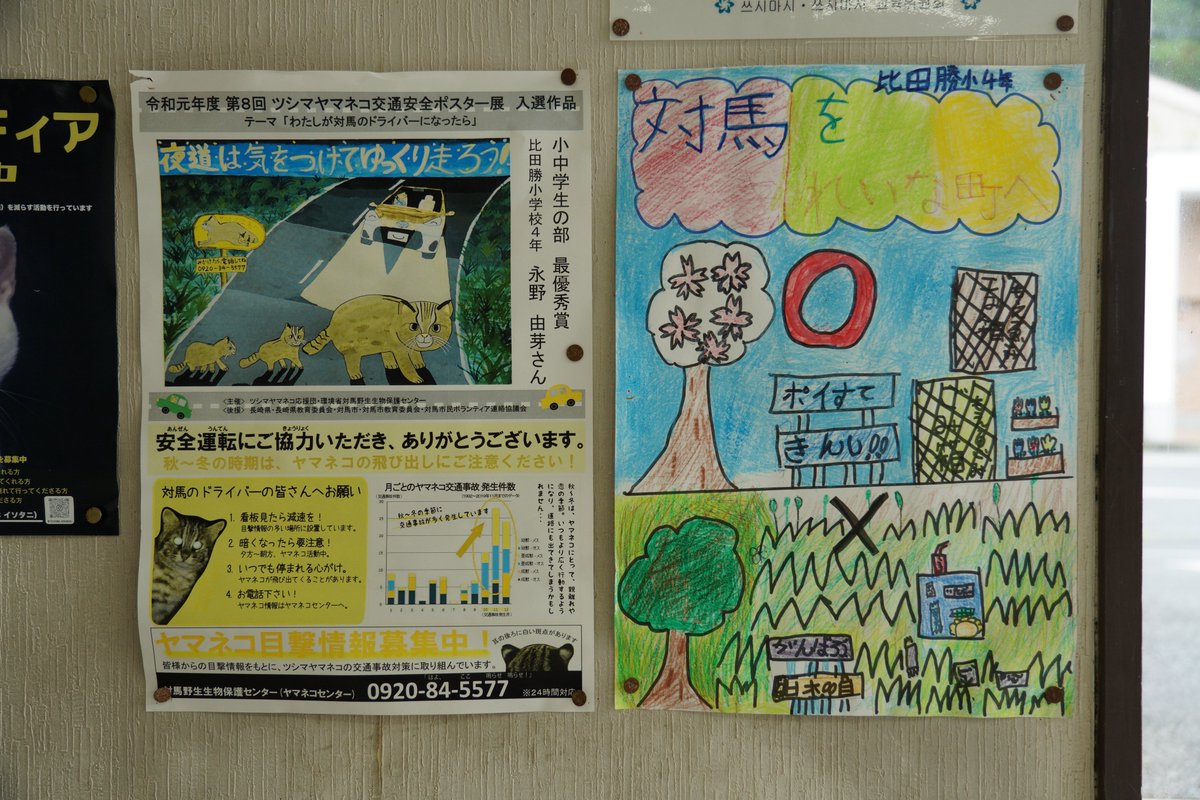 쓰시마시・쓰시마시 교육위원회
ィア
を減らす活動を行っています
募集中
る方
くれる方
れて行ってくださる方
さる方
イソタニ）
令和元年度 第8回 ツシマヤマネコ交通安全ポスター展 入選作品
テーマ「わたしが対馬のドライバーになったら」
夜道は気をつけてゆっくり走ろう!
みかけたら、電話してね
0920-84-5577
小中学生の部 最優秀賞
比田勝小学校4年 永野 由芽さん
〈主催〉 ツシマヤマネコ応援団・環境省対馬野生生物保護センター
〈後援〉 長崎県・長崎県教育委員会・対馬市・対馬市教育委員会・対馬市民ボランティア連絡協議会
あんぜん うんてん きょうりょく
安全運転にご協力いただき、ありがとうございます。
秋～冬の時期は、ヤマネコの飛び出しにご注意ください！
対馬のドライバーの皆さんへお願い
1. 看板見たら減速を！
目撃情報の多い場所に設置しています。
2. 暗くなったら要注意！
夕方～朝方、ヤマネコ活動中。
3. いつでも停まれる心がけ。
ヤマネコが飛び出てくることがあります。
4. お電話下さい！
ヤマネコ情報はヤマネコセンターへ。
月ごとのヤマネコ交通事故 発生件数
秋～冬の季節に
交通事故が多く発生しています
1 2 3 4 5 6 7 8 9 10 11 12
秋～冬は、ヤマネコにとって、親離れや
恋の季節。いつもより広く行動するよう
になり、道路にも出てきてしまうかもし
れません…
ヤマネコ目撃情報募集中！
耳の後ろに白い斑点があります
皆様からの目撃情報をもとに、ツシマヤマネコの交通事故対策に取り組んでいます。
対馬野生生物保護センター（ヤマネコセンター） 0920-84-5577 ※24時間対応
比田勝小4年
対馬を
きれいな町へ
ポイすて
きんし!!